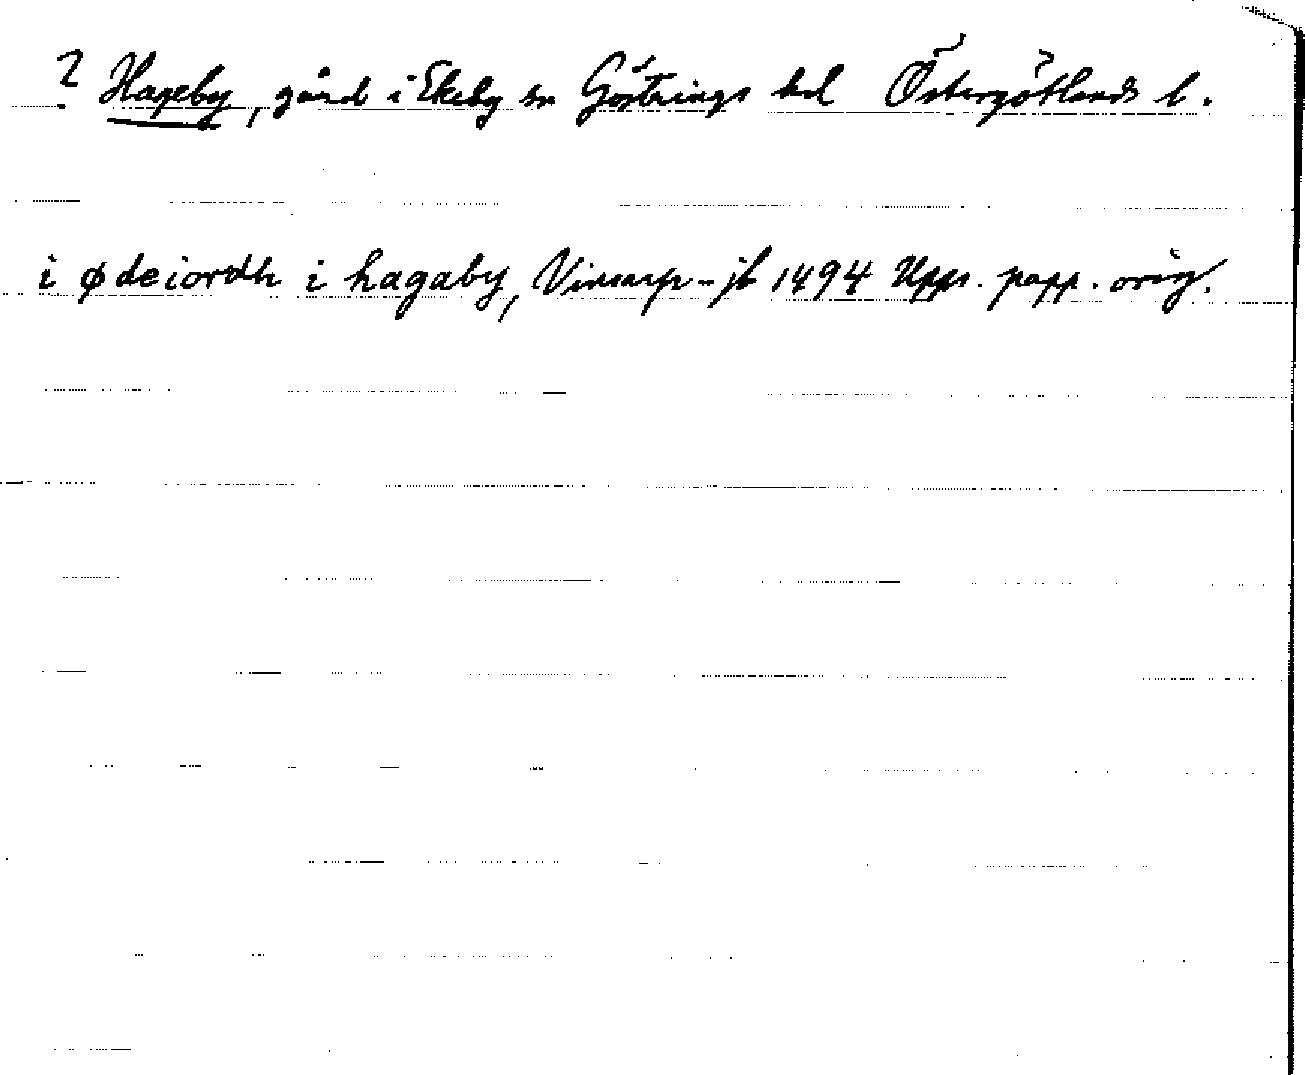 ? Hageby, gård i Ekeby sn Göstrings hd Östergötlands l.
i ødeiordh i hagaby, Vinsarp-jb 1494 Upps. papp. orig.